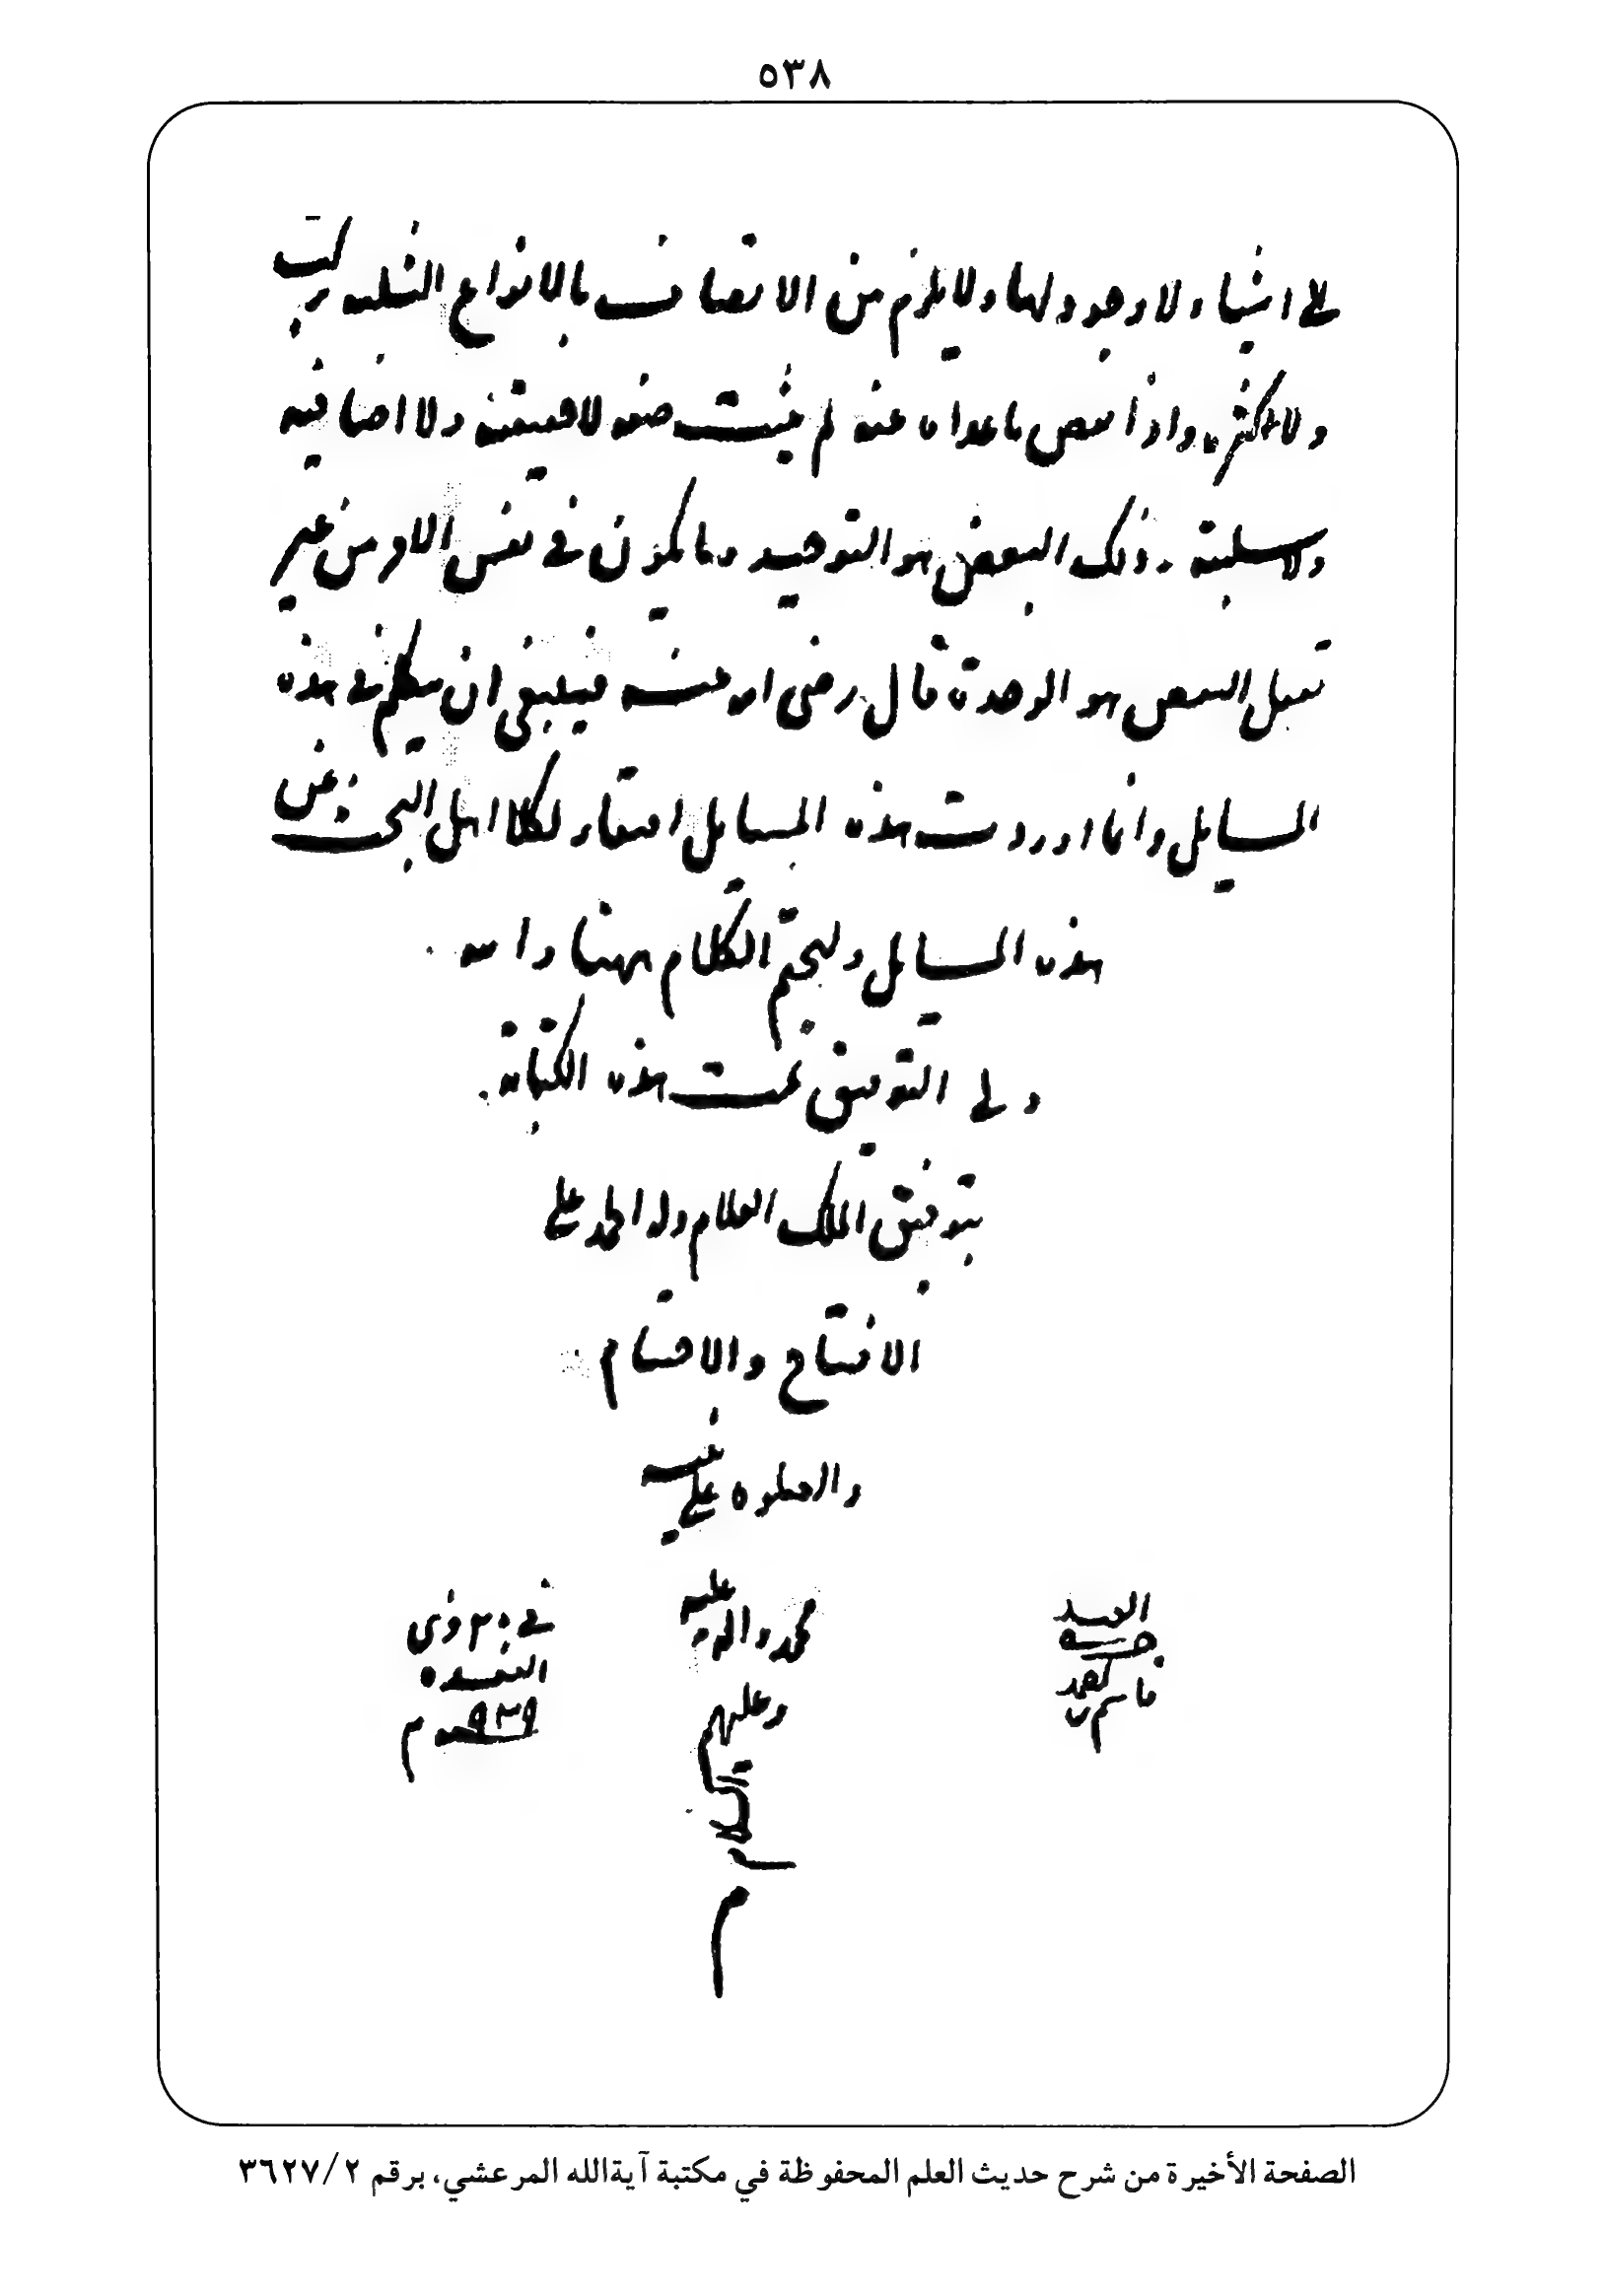 ٥٣٨
الى اشياء لا وجود لها ولا يلزم من الاتصاف بالانواع الثلثه تركيب
ولا تكثر واذا ما عداه عنه لم يثبت صفه لا حقيقية ولا اضافيه
ولا سلبية وذلك البعض هو التوحيد وما يكون في نفس الامر من غير
هو الوحدة قال رضى الله عنه فينبغى ان يتكلم في هذه
المسايل وانما اوردت هذه المسايل لكلا اهل عن
هذه المسايل ولنختم الكلام ههنا والله
ولى التوفيق تمت هذه الكتابة
بتوفيق الملك العلام وله الحمد على
الافتتاح والاختتام
والصلوه على نبيه
محمد واله عليه
وعليهم
السلام
م
العبد
قاسم
في ٢٠ ذى
القعده
٩٣٩ م
الصفحة الأخيرة من شرح حديث العلم المحفوظة في مكتبة آية‌الله المرعشي، برقم ٣٦٢٧/٢